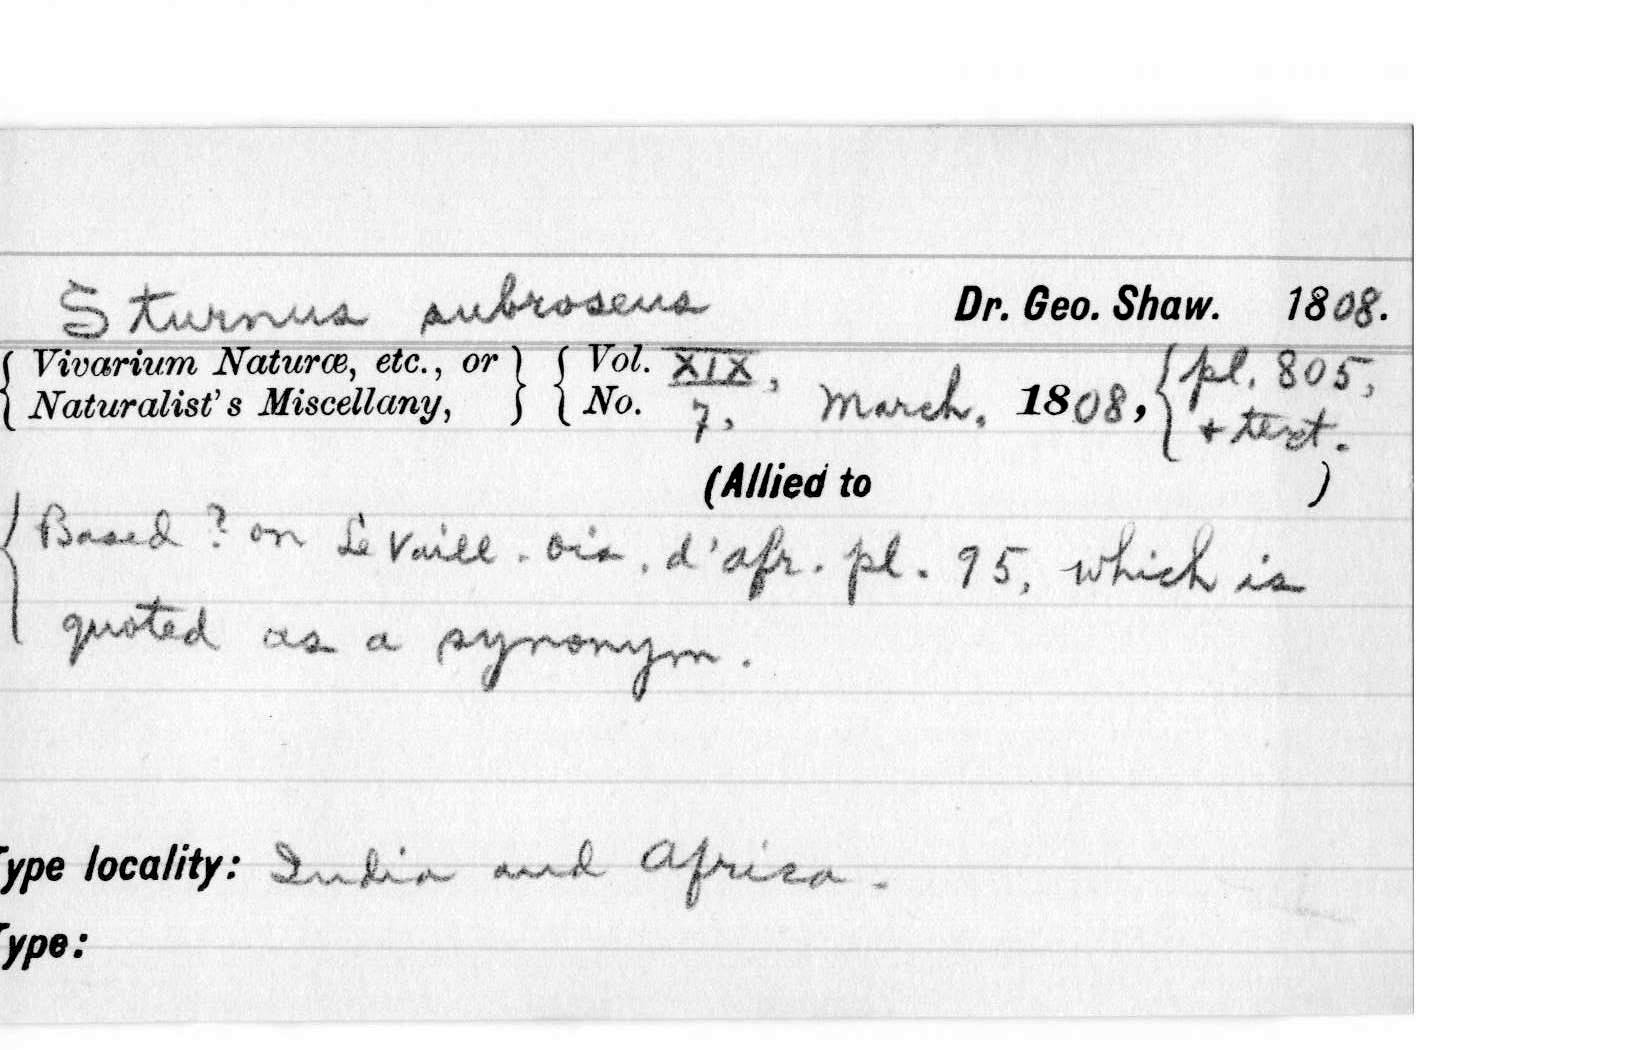 Sturnus subroseus Dr. Geo. Shaw. 1808.
{ Vivarium Naturæ, etc., or } { Vol. XIX, March. 1808, { pl. 805,
{ Naturalist's Miscellany, } { No. 7, + text.
(Allied to )
{ Based ? on Le Vaill. Ois. d'afr. pl. 95, which is
quoted as a synonym.
Type locality: India and Africa.
Type: